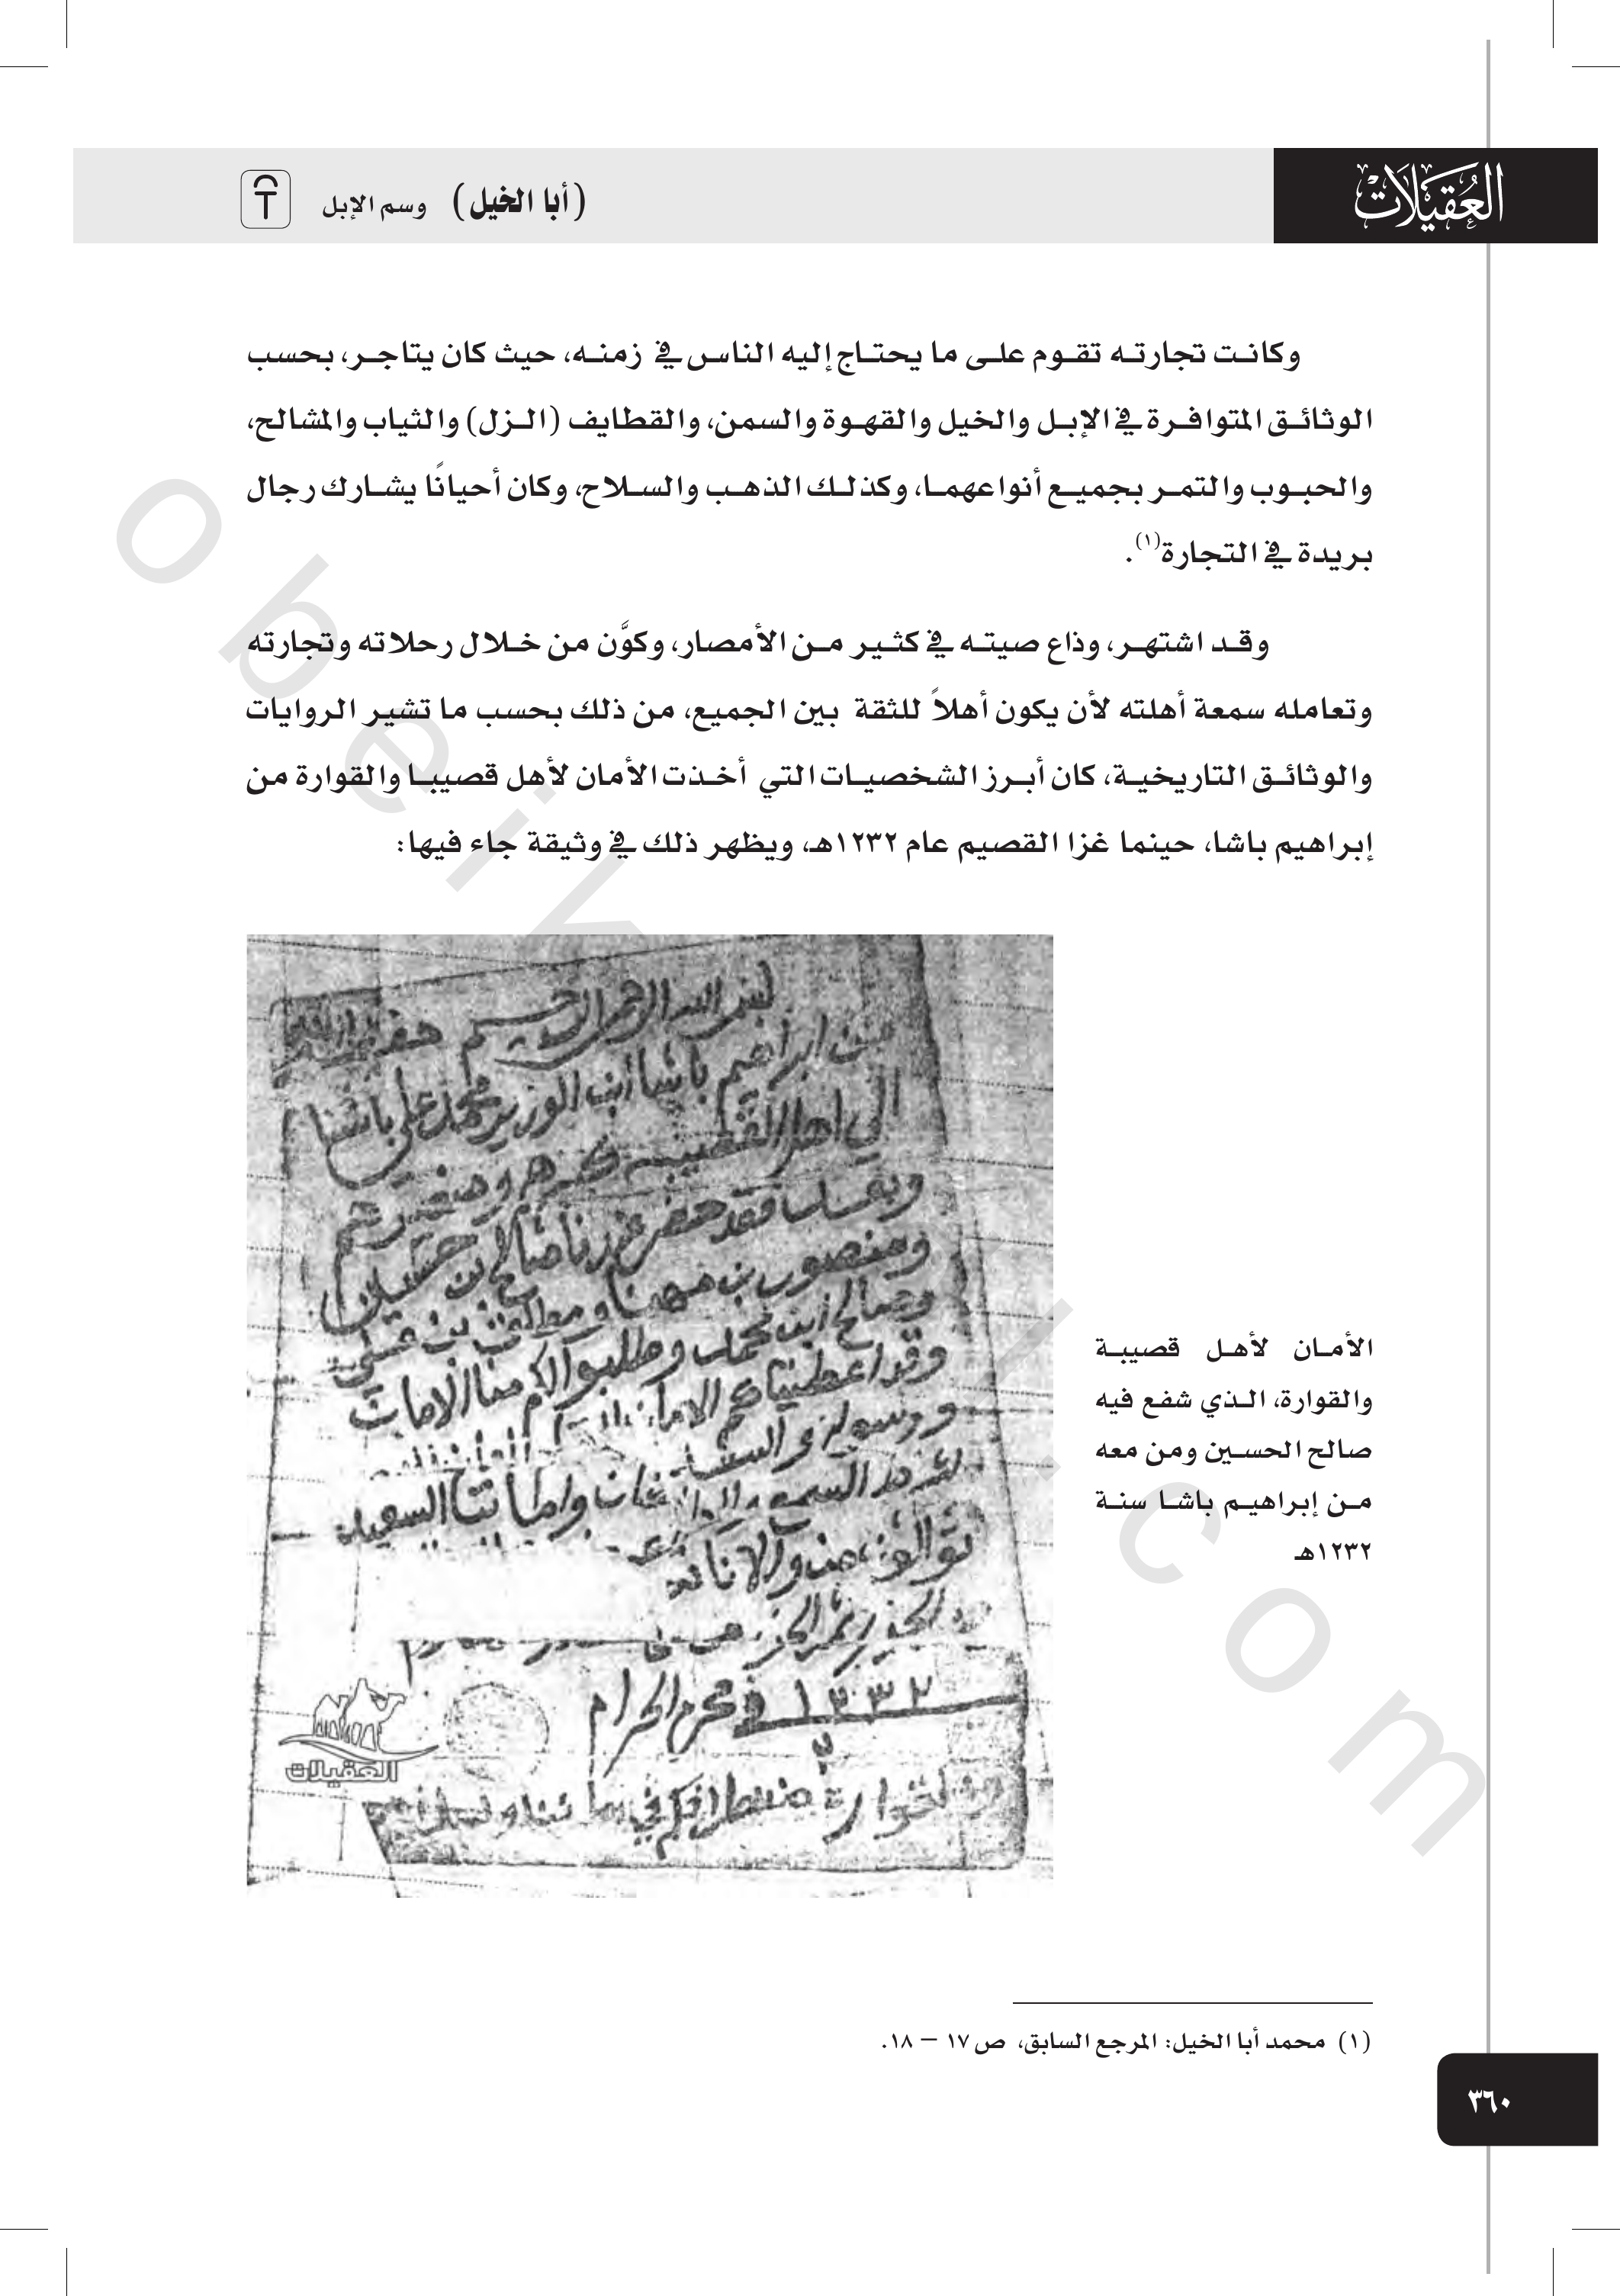 العُقيلات
(أبا الخيل) وسم الإبل
وكانت تجارته تقوم على ما يحتاج إليه الناس في زمنه، حيث كان يتاجر، بحسب
الوثائق المتوافرة في الإبل والخيل والقهوة والسمن، والقطايف (الزل) والثياب والمشالح،
والحبوب والتمر بجميع أنواعهما، وكذلك الذهب والسلاح، وكان أحيانًا يشارك رجال
بريدة في التجارة(١).
وقد اشتهر، وذاع صيته في كثير من الأمصار، وكوَّن من خلال رحلاته وتجارته
وتعامله سمعة أهلته لأن يكون أهلاً للثقة بين الجميع، من ذلك بحسب ما تشير الروايات
والوثائق التاريخية، كان أبرز الشخصيات التي أخذت الأمان لأهل قصيبا والقوارة من
إبراهيم باشا، حينما غزا القصيم عام ١٢٣٢هـ، ويظهر ذلك في وثيقة جاء فيها:
بسم الله الرحمن الرحيم
من ابراهيم باشا ابن الوزير محمد علي باشا
الى اهل القصيبه كبيرهم وصغيرهم
وبعد فقد حضر عندنا صالح بن حسين
ومنصور بن مهنا و
وصالح ابن محمد وطلبوا لكم منا الامان
وقد اعطيناكم الامان
ورسوله و
السمع
١٢٣٢ في محرم الحرام
العقيلات
الأمان لأهل قصيبة
والقوارة، الذي شفع فيه
صالح الحسين ومن معه
من إبراهيم باشا سنة
١٢٣٢هـ
(١) محمد أبا الخيل: المرجع السابق، ص ١٧ – ١٨.
٣٦٠
obeikandl.com